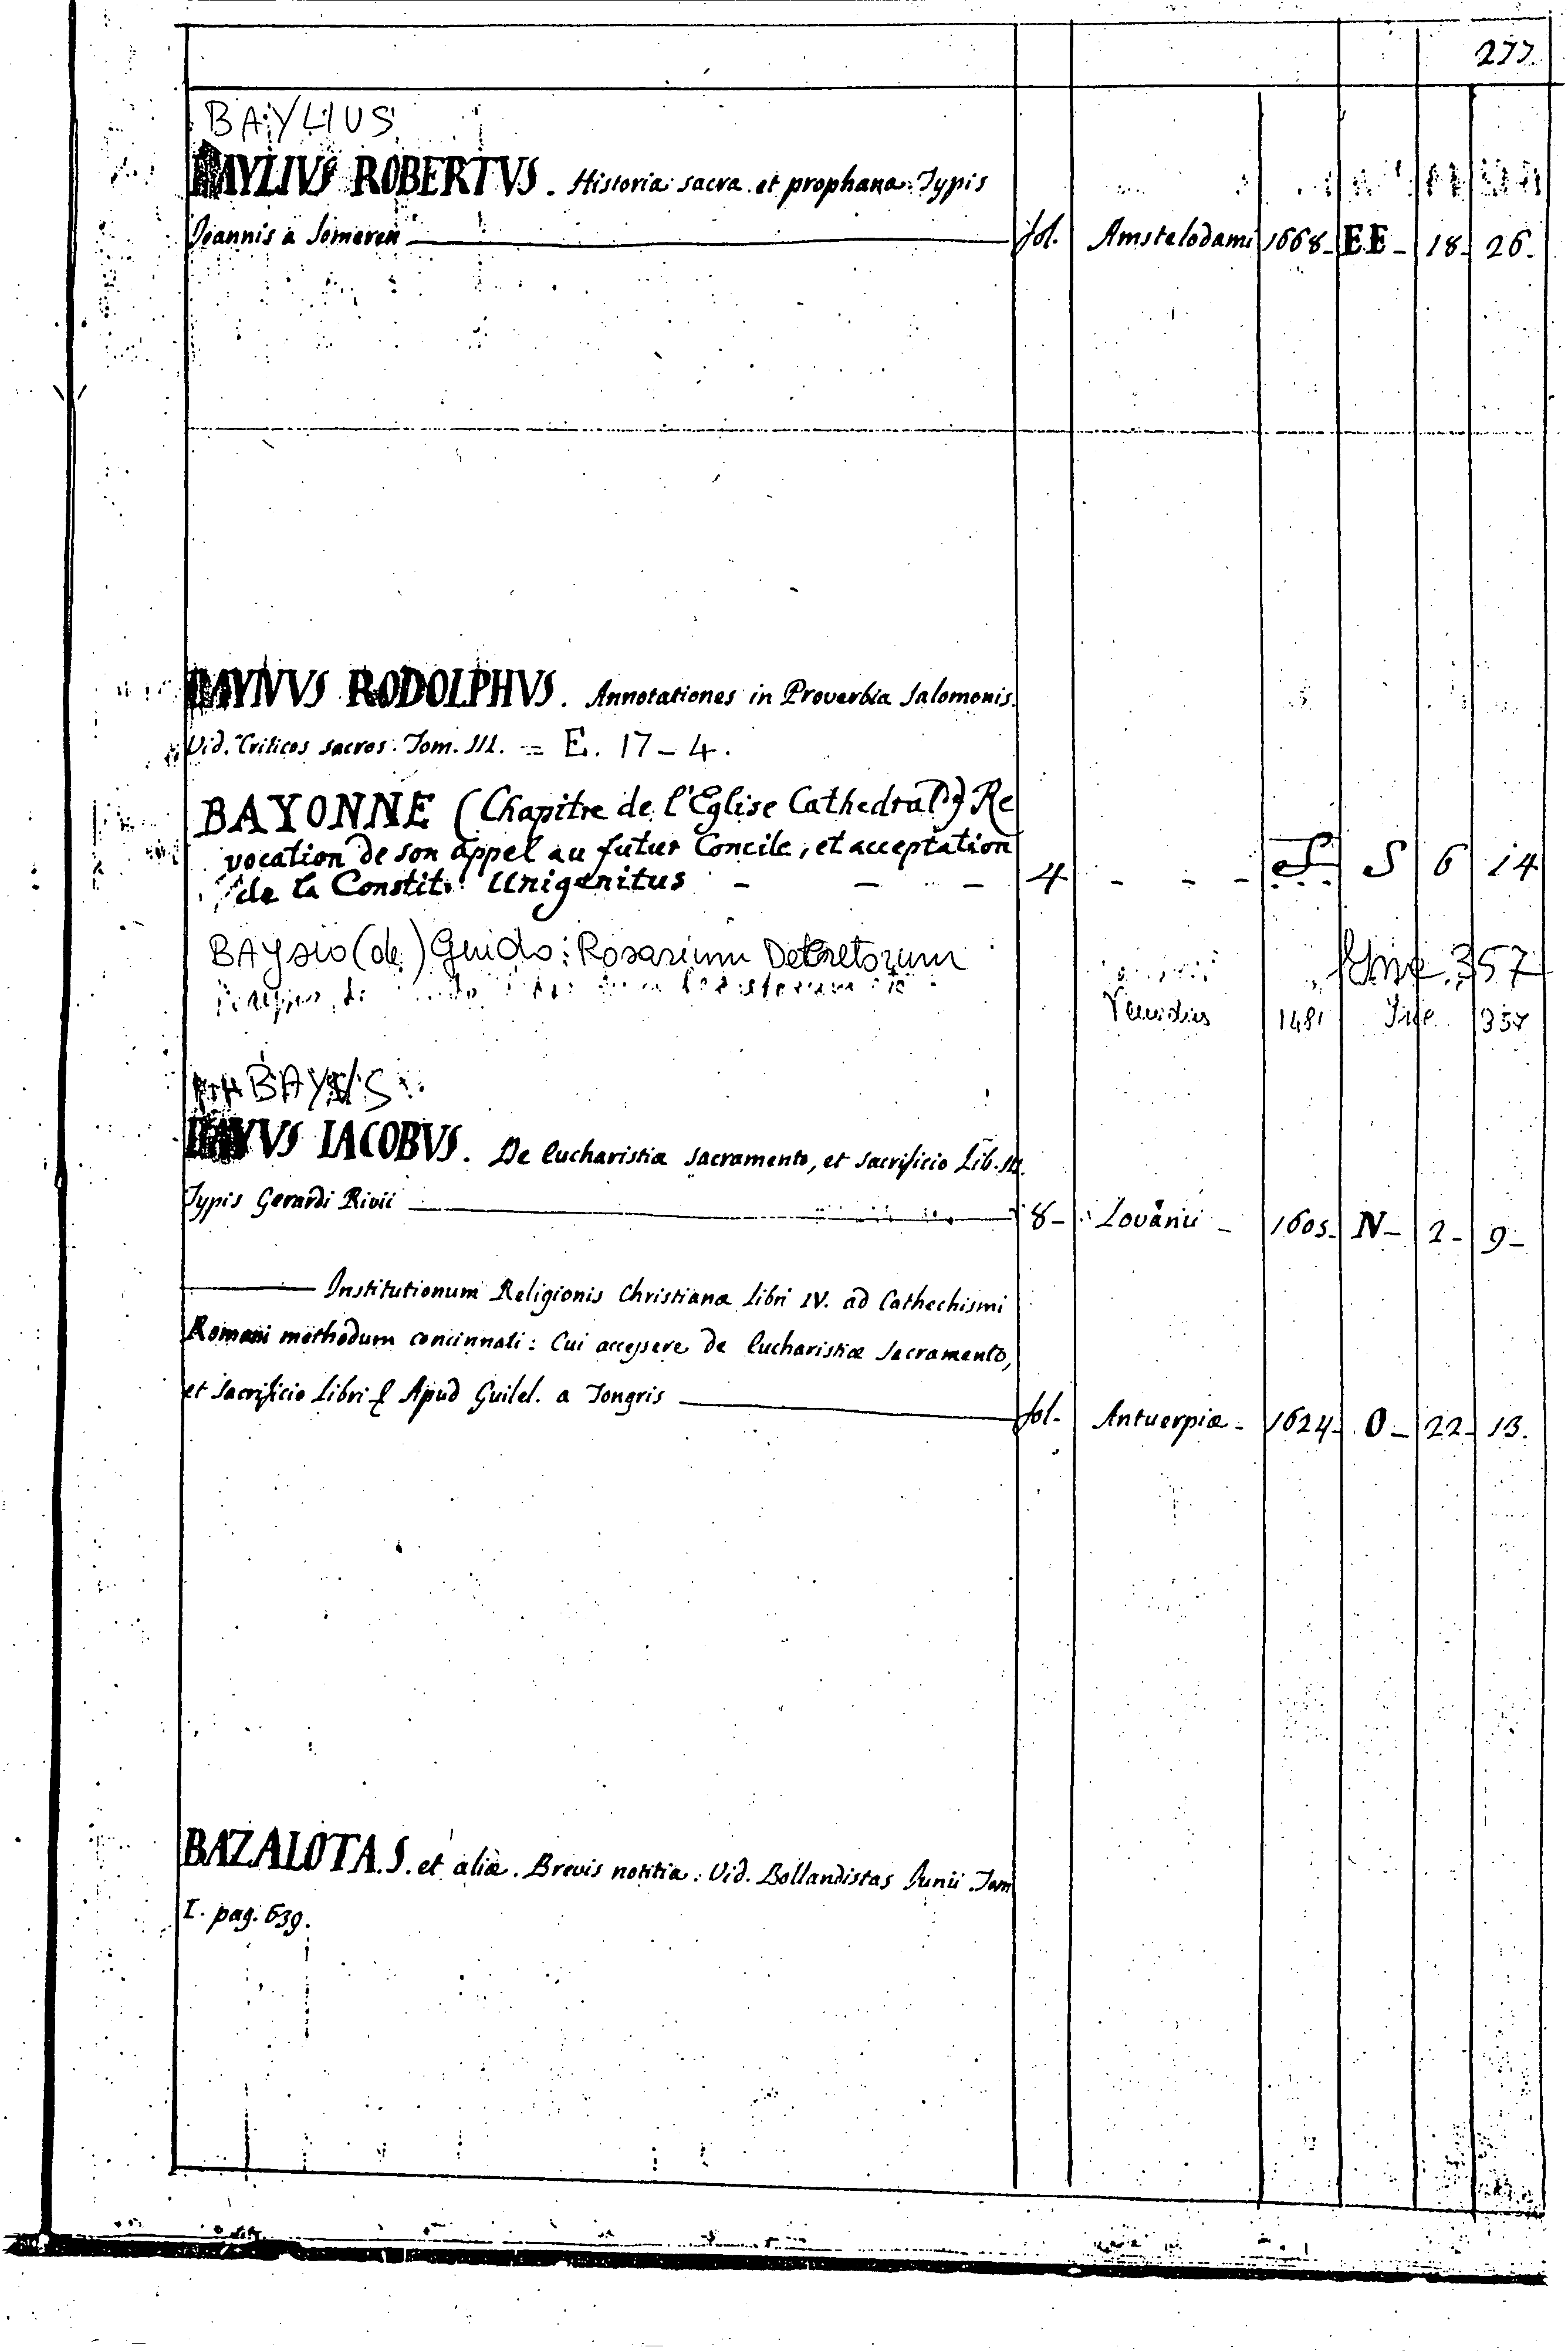 277.
BAYLIUS
BAYLIVS ROBERTVS. Historia sacra et prophana. Typis
Joannis a Someren fol. Amstelodami 1668- EE- 18- 26.
BAYNVS RODOLPHVS. Annotationes in Proverbia Salomonis.
Vid. Criticos sacros. Tom. III. = E. 17-4.
BAYONNE (Chapitre de l'Eglise Cathedral) Re
vocation de son appel au futur Concile, et acceptation
de la Constit. Unigenitus - - - 4 - - - S 6 14
BAYsio (de) Guido: Rosarium Decretorum 357
1481 Inc. 357
BAYUS
BAYVS IACOBVS. De Eucharistiæ sacramento, et sacrificio Lib. III.
Typis Gerardi Rivii 8- Lovanii - 1605- N- 2- 9-
Institutionum Religionis Christianæ Libri IV. ad Cathechismi
Romani methodum concinnati: Cui accessere de Eucharistiæ Sacramento,
et Sacrificio Libri Apud Guilel. a Tongris fol. Antuerpiæ - 1624- O- 22- 13.
BAZALOTA. S. et aliæ. Brevis notitia. Vid. Bollandistas Junii Tom
I. pag. 639.